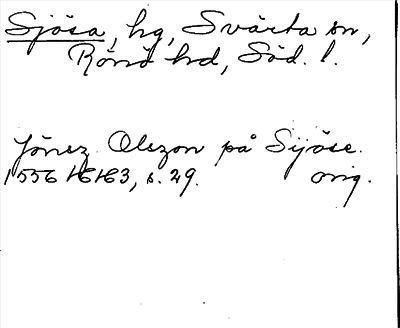 Sjösa, hg, Svärta sn,
Rönö hd, Söd. l.
Jönsz Olszon på Sijöse.
1556 16163, s. 29. orig.